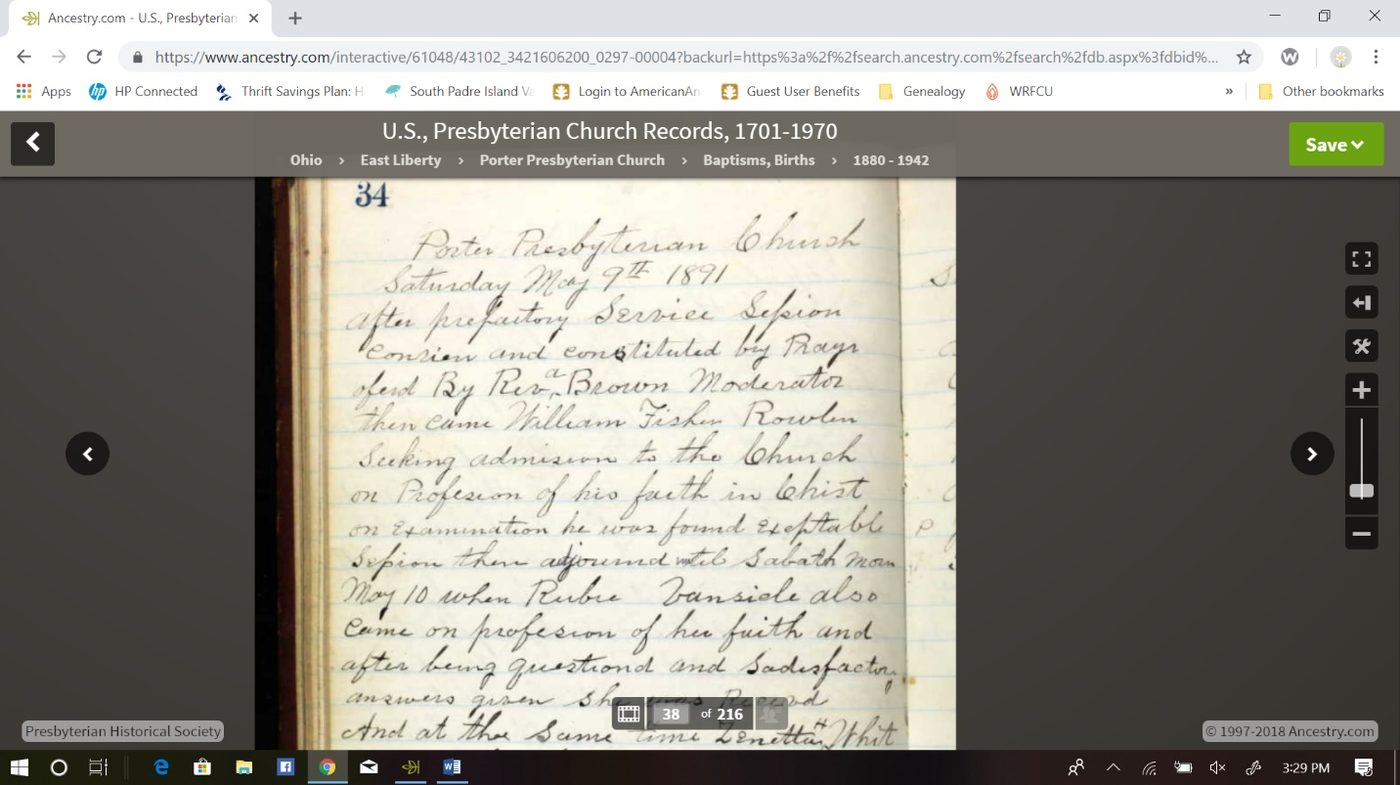 Ancestry.com - U.S., Presbyterian
https://www.ancestry.com/interactive/61048/43102_3421606200_0297-00004?backurl=https%3a%2f%2fsearch.ancestry.com%2fsearch%2fdb.aspx%3fdbid%...
Apps HP Connected Thrift Savings Plan: H South Padre Island Va Login to AmericanAn Guest User Benefits Genealogy WRFCU » Other bookmarks
U.S., Presbyterian Church Records, 1701-1970
Save
Ohio > East Liberty > Porter Presbyterian Church > Baptisms, Births > 1880 - 1942
34
Porter Presbyterian Church
Saturday May 9th 1891
after prefactory Service Session
Convien and constituted by Prayr
oferd By Rev a. Brown Moderator
then came William Fisher Rowlen
Seeking admision to the Church
on Profesion of his faith in Christ
on Examination he was found Exeptable
Session then adjournd until Sabath morn
May 10 when Rubie Vansicle also
Came on profesion of her faith and
after being questiond and Sadisfactory
answers given she was Receivd
And at the Same time Zenetta H Whit
38 of 216
Presbyterian Historical Society
© 1997-2018 Ancestry.com
3:29 PM